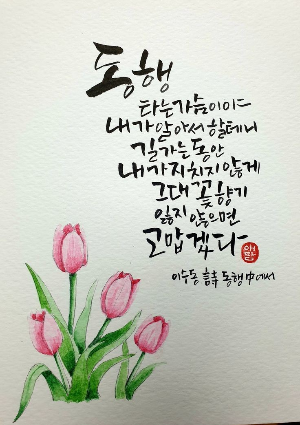 동행
타는가슴이야
내가 알아서 할테니
길가는 동안
내가 지치지 않게
그대 꽃향기
잃지 않으면
고맙겠다
이수동 詩 동행 中에서